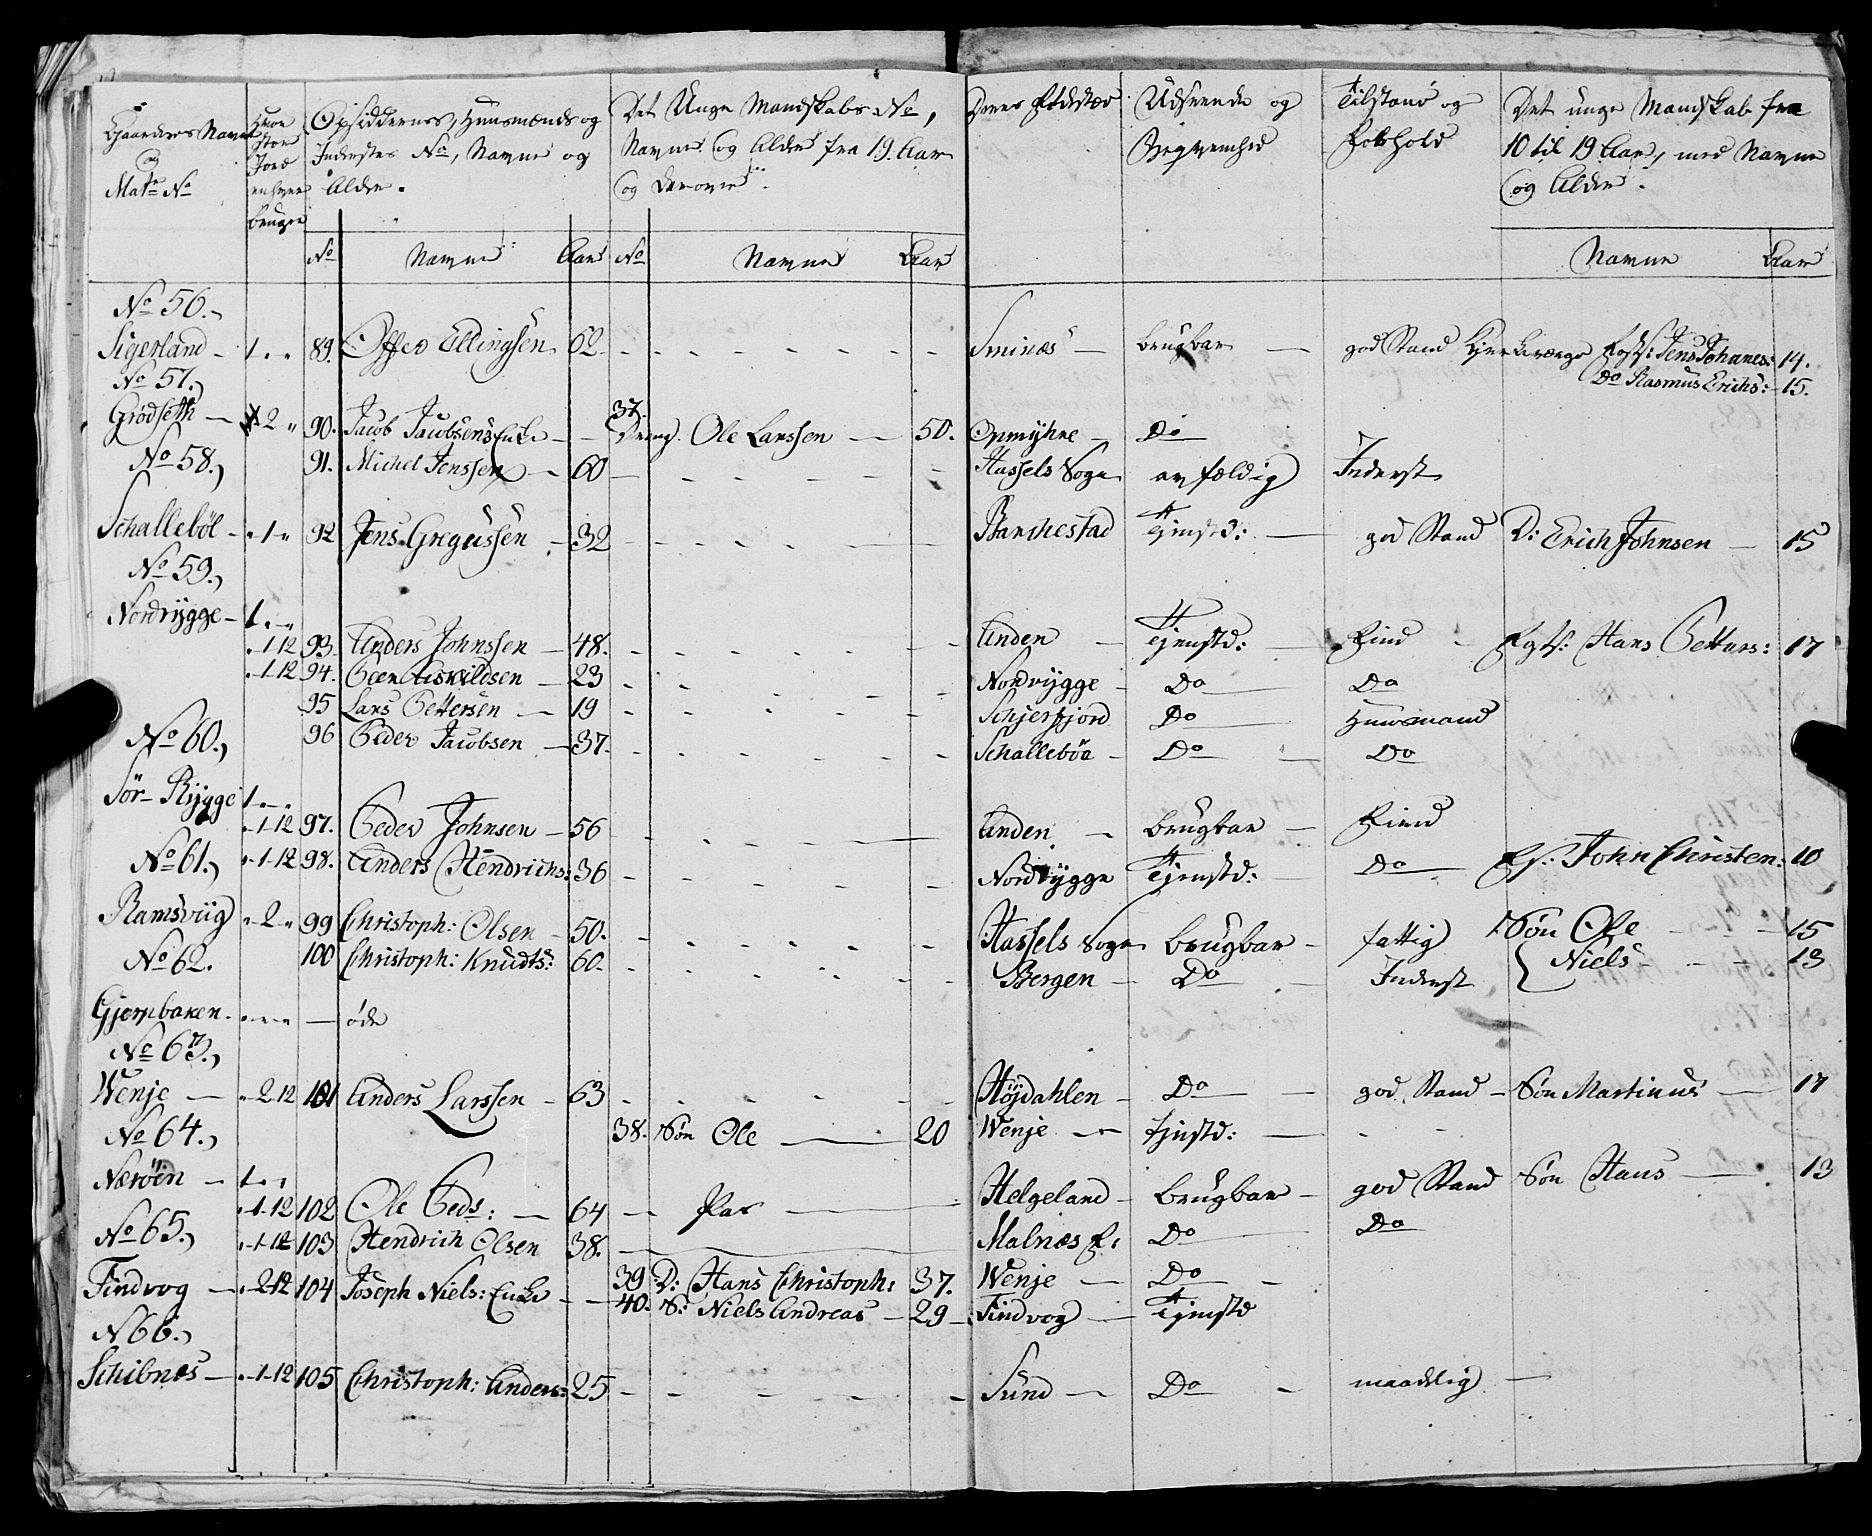 Gaardenes Navne og Matr No | Hvor stor Jord enhver bruger | Opsiddernes, Huusmænds og Inderstes No, Navne og Alder. | Det Unge Mandskabs No, Navne og Alder fra 19. Aar og derover. | Deres Fødested | Udseende og Beqvemhed | Tilstand og Forhold | Det unge Mandskab fra 10 til 19 Aar, med Navne og Alder.
No | Navne | Aar | No | Navne | Aar | Navne | Aar
No 56.
Sigerland - 1. " 89. Offer Ellingsen 62. Sminæs - brugbar - god Stand Jens Johannes: 14.
No 57. Do Rasmus Erichs: 15.
Grödseth - 2 " 90. Jacob Jacobsens Enke - 37. Dreng. Ole Larssen - 50. Opmyhre - Do
No 58. 91. Michel Jenssen - 60 Hassels Sogn avfældig Inderst
Schalleböl - " 1 " 92 Jens Gregussen - 32 Barchestad Tjenstd: - god Stand D: Erich Johnsen - 15
No 59.
Nordrygge - 1. "
" 1-12 93. Anders Johnssen - 48. Anden - Tjenstd: - Eiend - Hans Petters: 17
" 1-12 94. Peer Asvildsen - 23 Nordrygge - Do Do
95 Lars Pettersen - 19 Schjerfjord Do Huusmand
No 60. 96 Peder Jacobsen - 37. Schallebøa - Do - Do
Sör-Rygge 1. "
" 1-12 97. Peder Johnsen - 56 Anden - brugbar - Eiend
No 61. " 1-12 98. Anders Hendrichs: 36 Nordrygge Tjenstd: Do John Christen: 10
Ramsviig " 2 " 99 Christoph: Olsen - 50. Hassels Sogn brugbar - fattig Søn Ole - 15
No 62. 100 Christoph: Knudts: 60. Bergen - Do - Inderst Niels - 13
Gjernbaken - " - " - öde
No 63.
Wenje - " 2-12 101 Anders Larssen - 63 Höjdahlen - Do - god Stand - Søn Martinus - 17
No 64. 38. Søn Ole - 20 Wenje - Tjenstd: -
Næröen - 1. "
" 1-12 102 Ole Peds: - 64 - Par - Helgeland - brugbar - god Stand Søn Hans - 13
No 65. " 1-12 103 Hendrich Olsen 38. - Malnæs Do Do
Findvog - " 2-12 104 Joseph Niels: Enke - 39 D: Hans Christoph: 37. Wenje - Do -
40. S: Niels Andreas - 29 - Findvog - Tjenstd
N 66.
Schibnæs - " 1-12 105 Christoph: Anders: 25 Sund - Do - maadelig -